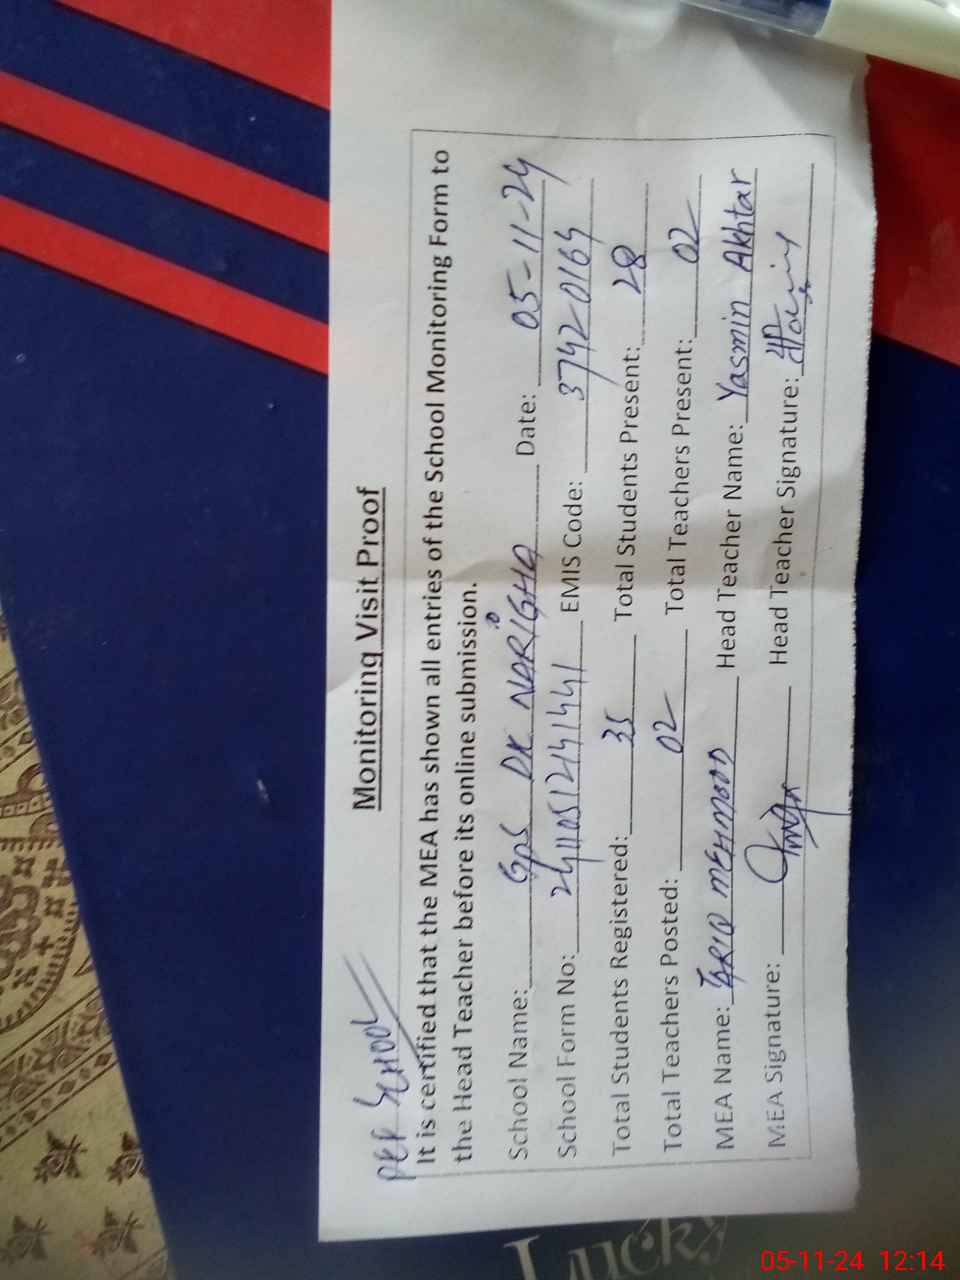 PEF SCHOOL
Monitoring Visit Proof
It is certified that the MEA has shown all entries of the School Monitoring Form to
the Head Teacher before its online submission.
School Name: GPS DK NARIGHA Date: 05-11-24
School Form No: 241105121441441 EMIS Code: 37420164
Total Students Registered: 35 Total Students Present: 28
Total Teachers Posted: 02 Total Teachers Present: 02
MEA Name: TARIQ MEHMOOD Head Teacher Name: Yasmin Akhtar
MEA Signature: Head Teacher Signature:
Lucky
05-11-24 12:14